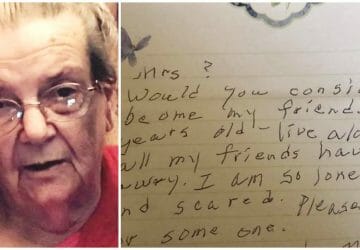 Mrs ?
Would you consid
become my friend.
years old - live alo
all my friends hav
away. I am so lone
nd scared. Please
r some one.